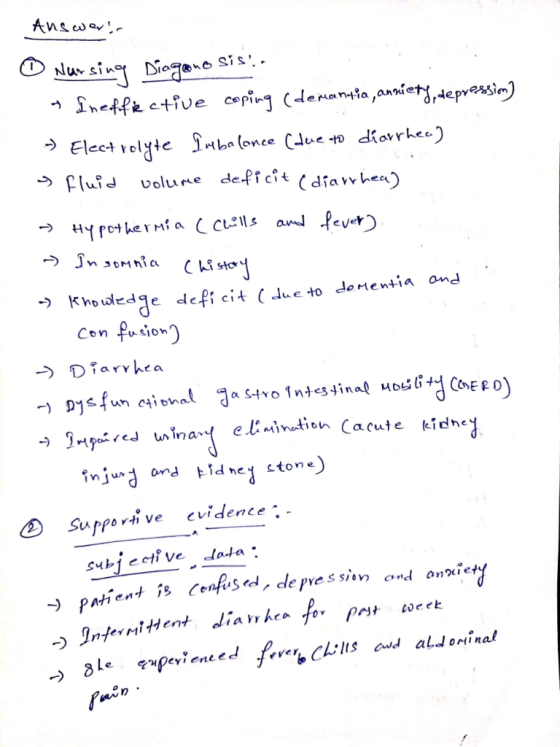 Answer:-
① Nursing Diagonosis:-
→ Ineffective coping (demantia, anxiety, depression)
→ Electrolyte Imbalance (due to diarrhea)
→ fluid volume deficit (diarrhea)
→ Hypothermia (Chills and fever)
→ Insomnia (history
→ Knowledge deficit (due to dementia and
confusion)
→ Diarrhea
→ Dysfunctional gastrointestinal mobility (GERD)
→ Impaired urinary elimination (acute kidney
injury and kidney stone)
② Supportive evidence:-
subjective data:
→ patient is confused, depression and anxiety
→ Intermittent diarrhea for past week
→ She experienced fever, chills and abdominal
pain.